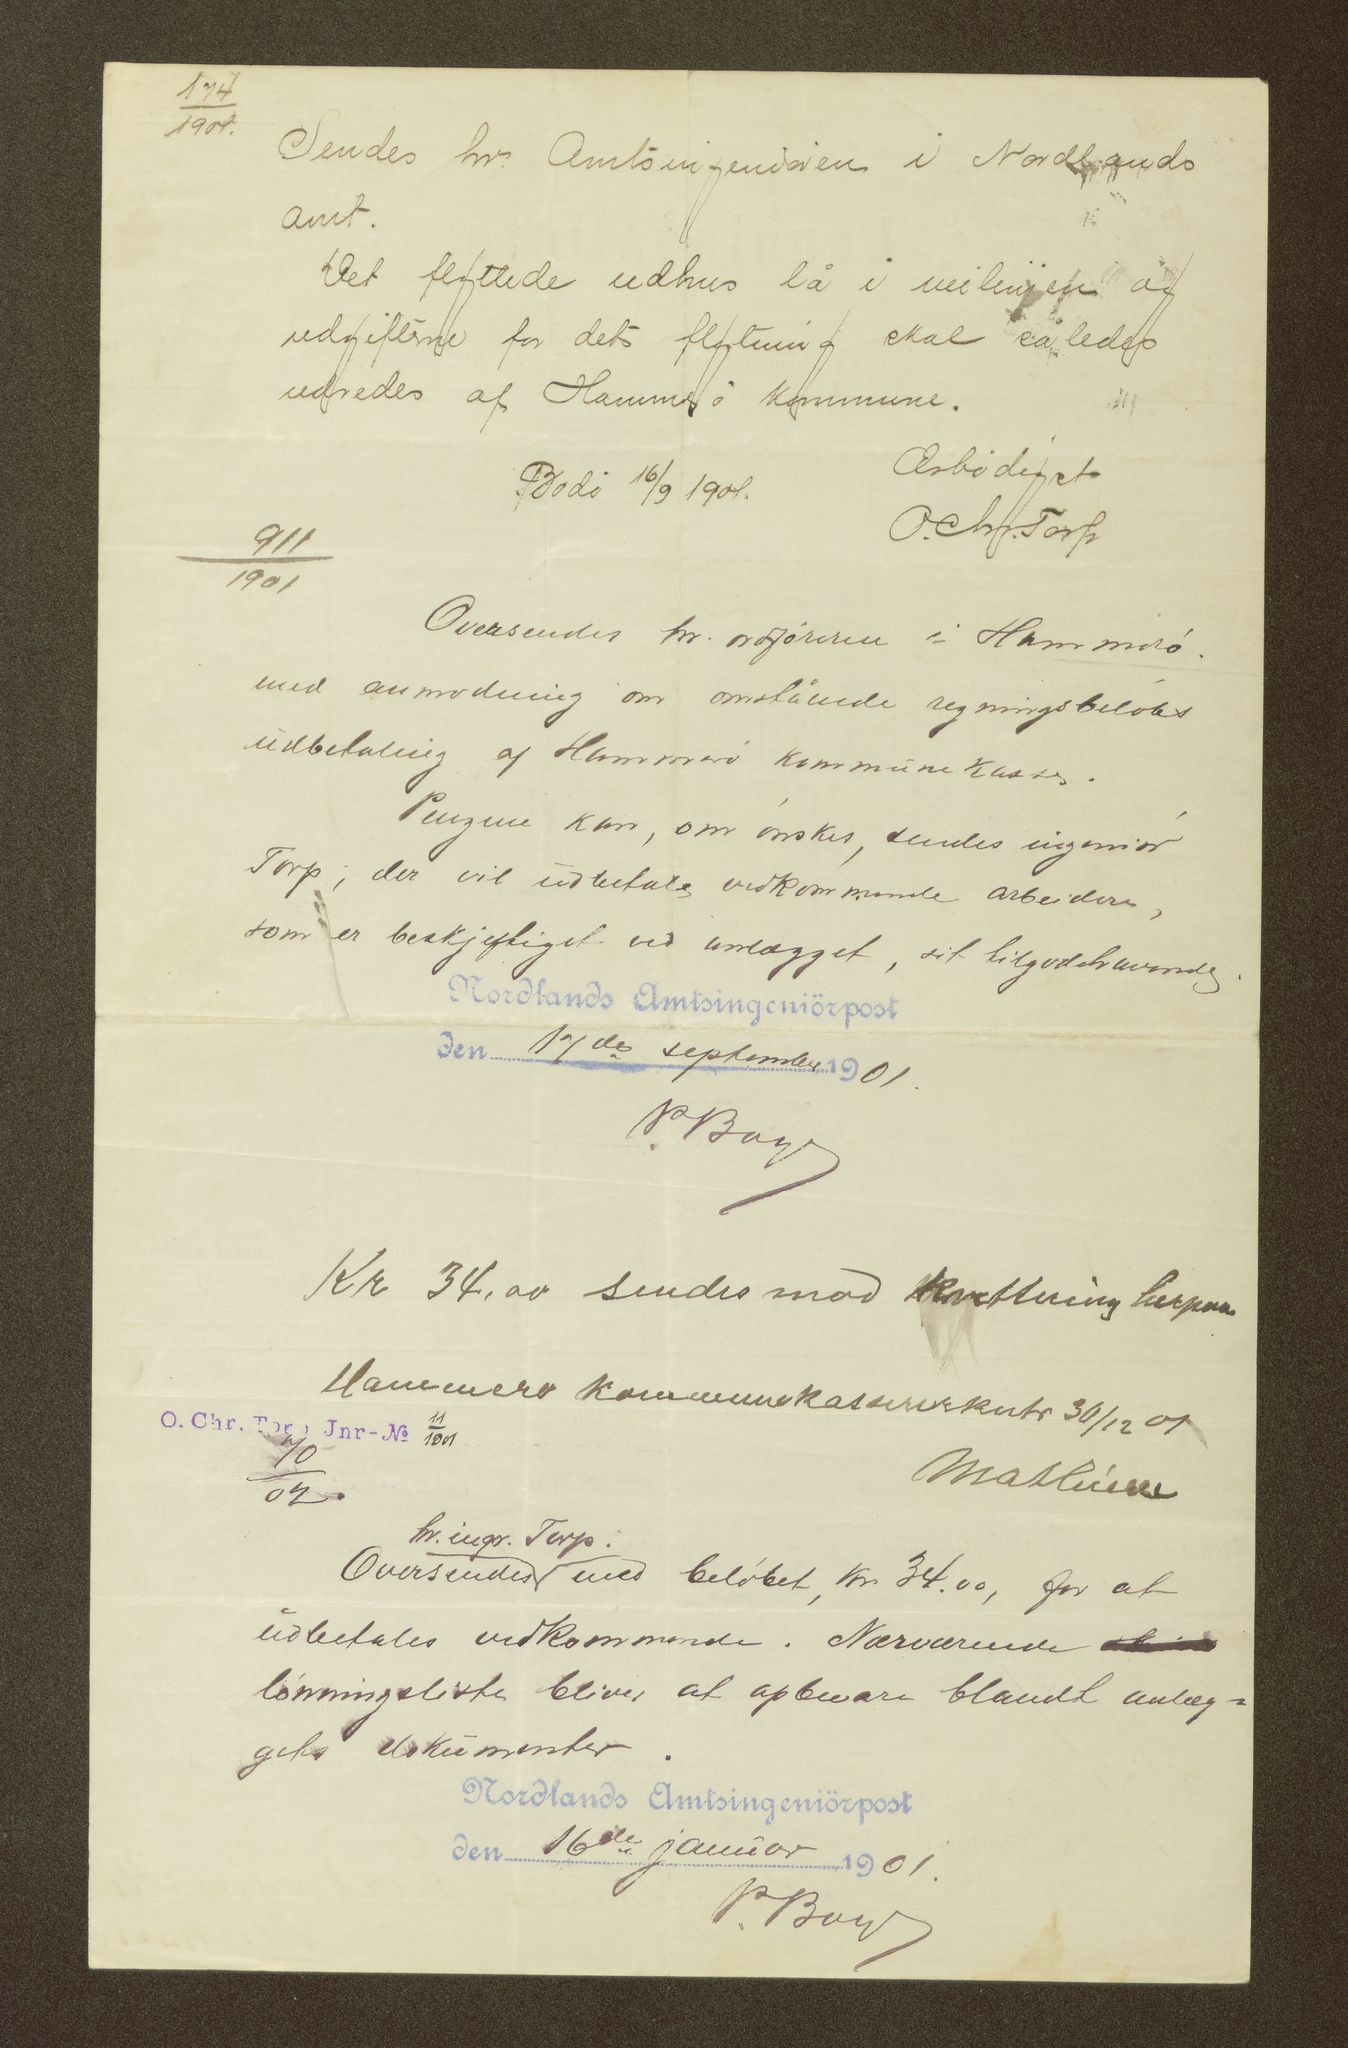 174
1901.
Sendes hr. Amtsingeniøren i Nordlands
amt.
Det flyttede udhus lå i veilinjen og
udgifterne for dets flytning skal således
udredes af Hammerø kommune.
Bodø 16/9 1901.
Ærbødigst
O. Chr. Torp
911
1901
Oversendes hr. ordføreren i Hammerø.
med anmodning om omstående regningsbeløbs
udbetaling af Hammerø kommunekasse.
Pengene kan, om ønskes, sendes ingeniør
Torp, der vil udbetale vedkommende arbeidere,
som er beskjeftiget ved anlægget, sit tilgodehavende.
Nordlands Amtsingeniörpost
den 17de september 1901.
P. Boye
Kr 34,00 sendes mod kvittering herpaa
Hammerø kommunekassererkntr 30/12 01
O. Chr. Torp Jnr-No 11/1901
Mathisen
70
02.
hr. ingr. Torp.
Oversendes med beløbet, kr. 34.00, for at
udbetales vedkommende. Nærværende
lønningsliste bliver at opbevare blandt anlæg-
gets dokumenter.
Nordlands Amtsingeniörpost
den 16de januar 1901.
P. Boye